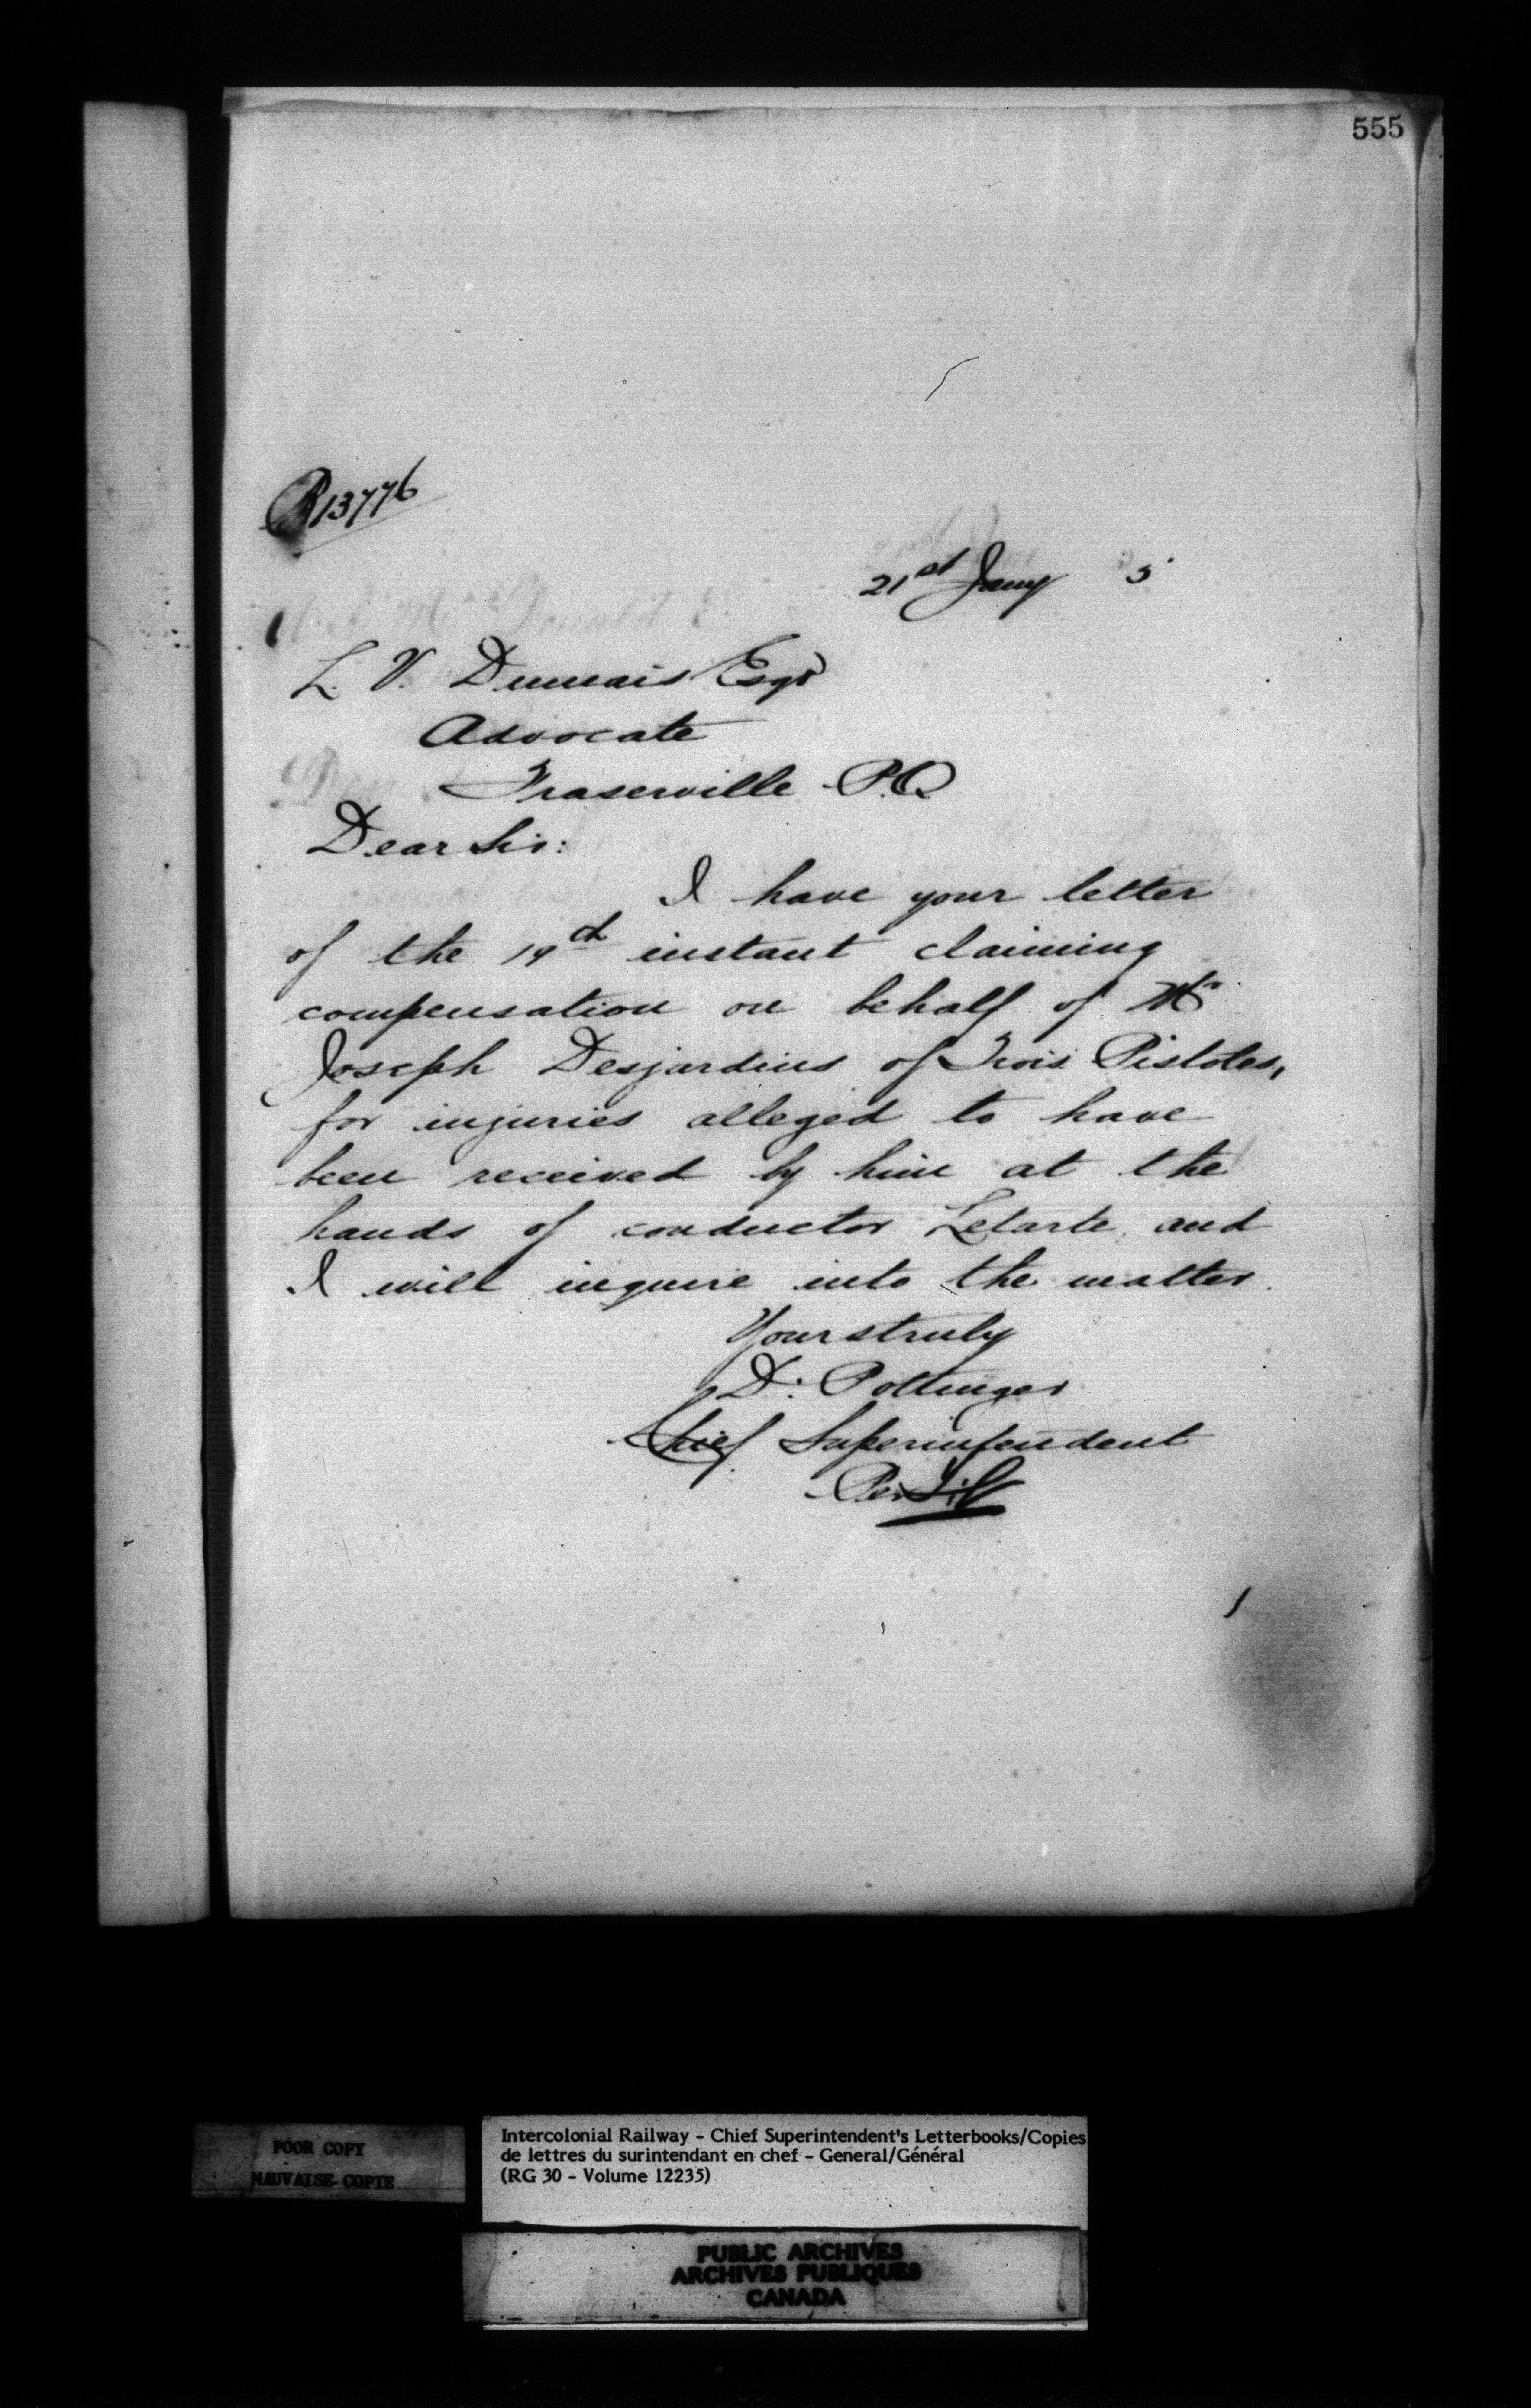 555
R13776
21st Jany 5
L. V. Dumais Esqr
Advocate
Fraserville P.Q
Dear Sir:
I have your letter
of the 19th instant claiming
compensation on behalf of Mr
Joseph Desjardins of Trois Pistoles,
for injuries alleged to have
been received by him at the
hands of conductor Letarte, and
I will inquire into the matter.
Yours truly
D. Pottinger
Chief Superintendent
Per
POOR COPY
MAUVAISE COPIE
Intercolonial Railway - Chief Superintendent's Letterbooks/Copies
de lettres du surintendant en chef - General/Général
(RG 30 - Volume 12235)
PUBLIC ARCHIVES
ARCHIVES PUBLIQUES
CANADA